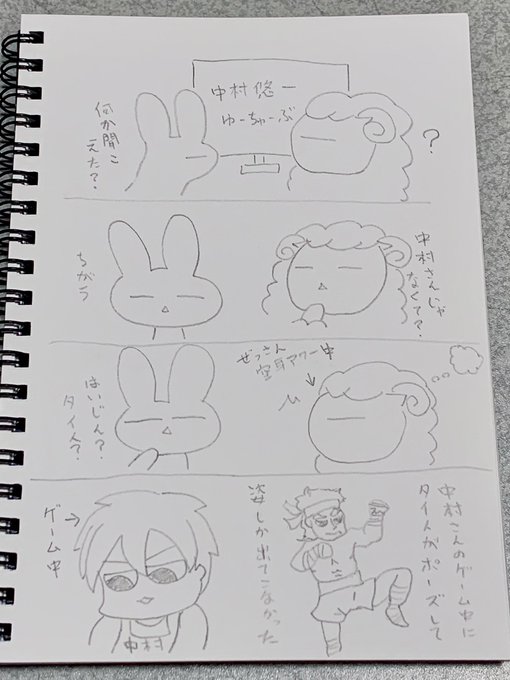 中村悠一
ゆーちゅーぶ
？
何か聞こ
えた？
中村さんじゃ
なくて？
ちがう
ぜっさん
空耳アワー中
はいじん？
タイ人？
中村さんのゲーム中に
タイ人がポーズして
姿しか出てこなかった
ゲーム中
中村